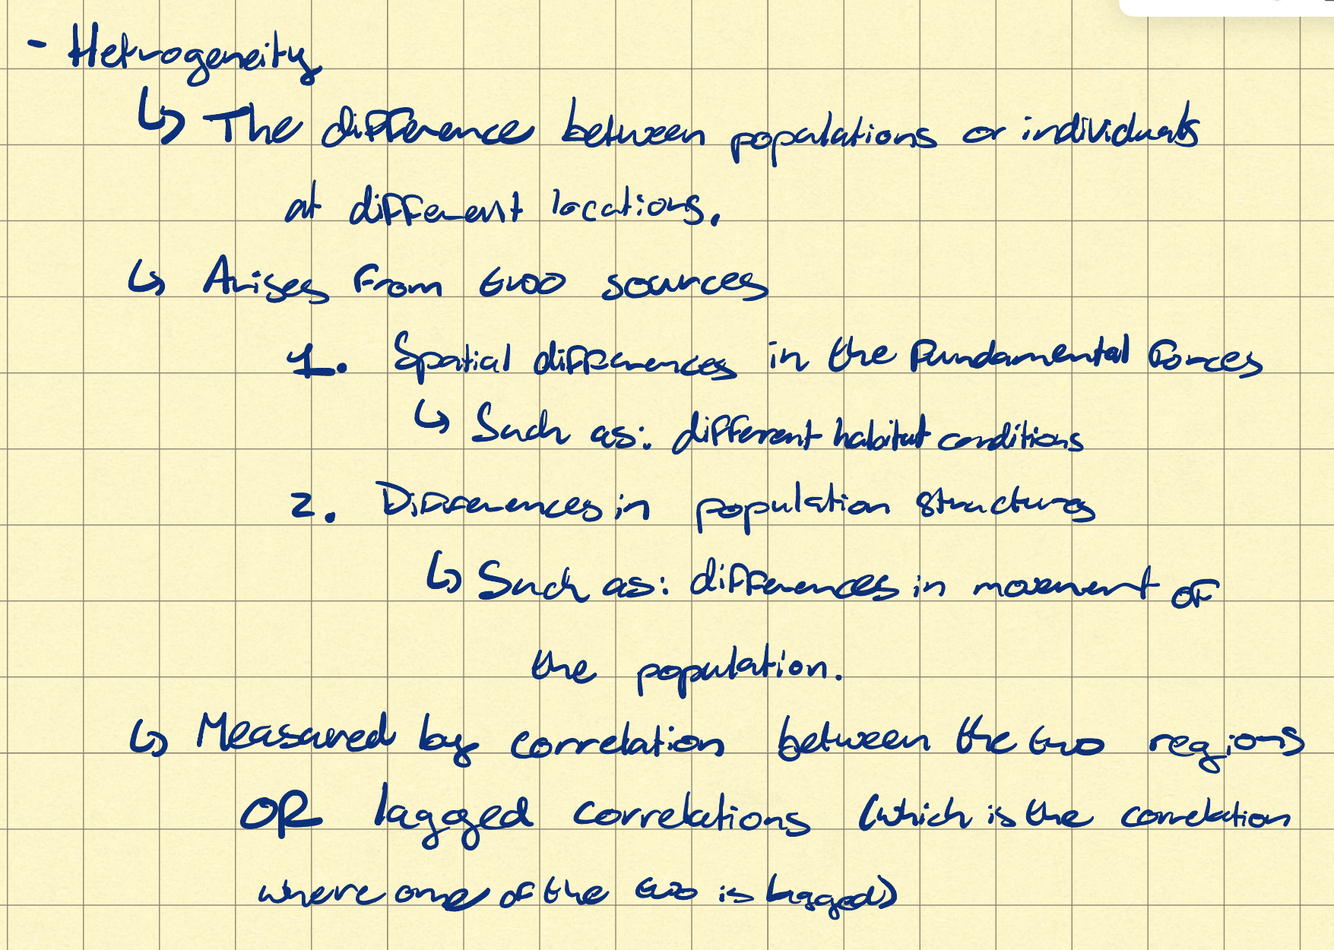 - Hetrogeneity
↳ The difference between populations or individuals
at different locations.
↳ Arises from two sources
1. Spatial differences in the fundamental forces
↳ Such as: different habitat conditions
2. Differences in population structures
↳ Such as: differences in movement of
the population.
↳ Measured by correlation between the two regions
OR lagged correlations (which is the correlation
where one of the two is lagged)